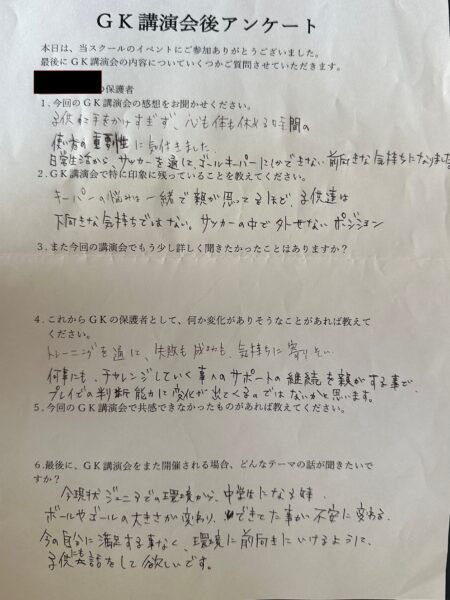 GK講演会後アンケート
本日は、当スクールのイベントにご参加ありがとうございました。
最後にGK講演会の内容についていくつかご質問させていただきます。
の保護者
1.今回のGK講演会の感想をお聞かせください。
子供に手をかけすぎず、心も体も休める時間の
使い方の重要性に気付きました。
日常生活から、サッカーを通して、ゴールキーパーにしかできない前向きな気持ちになりました
2.GK講演会で特に印象に残っていることを教えてください。
キーパーの悩みは一緒で親が思ってるほど、子供達は
下向きな気持ちではない。サッカーの中で外せないポジション
3.また今回の講演会でもう少し詳しく聞きたかったことはありますか?
4.これからGKの保護者として、何か変化がありそうなことがあれば教えて
ください。
トレーニングを通して、失敗も成功も、気持ちに寄りそい
何事にも、チャレンジしていく事へのサポートの継続を親がする事で
プレイでの判断能力に変化が出てくるのではないかと思います。
5.今回のGK講演会で共感できなかったものがあれば教えてください。
6.最後に、GK講演会をまた開催される場合、どんなテーマの話が聞きたいで
すか?
今現状ジュニアでの環境から、中学生になる時
ボールやゴールの大きさが変わり、できてた事が不安に変わる、
今の自分に満足する事なく、環境に前向きにいけるように、
子供にも話をして欲しいです。